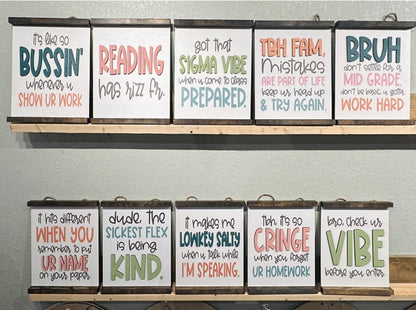 it's like so
BUSSIN'
whenever u
SHOW UR WORK
READING
has rizz fr.
got that
SIGMA VIBE
when u come to class
PREPARED.
TBH FAM,
mistakes
ARE PART OF LIFE
keep ur head up
& TRY AGAIN.
BRUH
don't settle for a
MID GRADE.
don't be basic. u gotta
WORK HARD
it hits different
WHEN YOU
remember to put
UR NAME
on your paper.
dude, the
SICKEST FLEX
is being
KIND.
it makes me
LOWKEY SALTY
when u talk while
I'M SPEAKING.
tbh. it's so
CRINGE
when you forget
UR HOMEWORK
bro, check ur
VIBE
before you enter